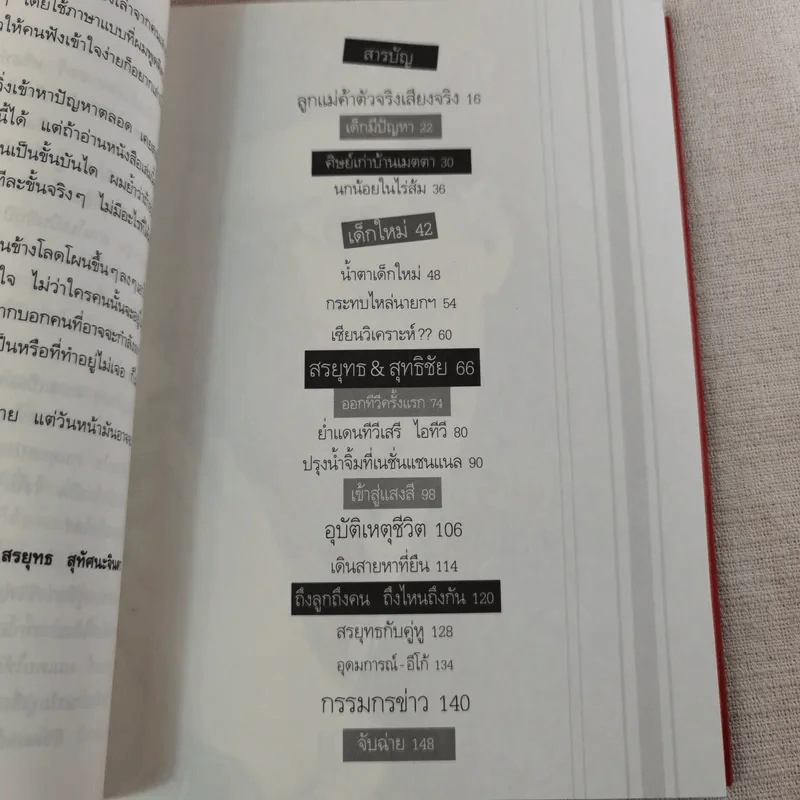 โดยใช้ภาษาแบบที่ผมพูด
ให้คนฟังเข้าใจง่ายก็อยาก
วิ่งเข้าหาปัญหาตลอด
นี้ได้ แต่ถ้าอ่านหนังสือเล่มนี้
นเป็นขั้นบันได ผมย้ำว่า
ทีละขั้นจริงๆ ไม่มีอะไรที่
นข้างโลดโผนขึ้นๆลงๆ
ใจ ไม่ว่าใครคนนั้นจะอยู่
ากบอกคนที่อาจจะกำลัง
ป็นหรือที่ทำอยู่ไม่เจอ
าย แต่วันหน้ามันอาจ
สรยุทธ สุทัศนะจินดา
สารบัญ
ลูกแม่ค้าตัวจริงเสียงจริง 16
เด็กมีปัญหา 22
ศิษย์เก่าบ้านเมตตา 30
นกน้อยในไร่ส้ม 36
เด็กใหม่ 42
น้ำตาเด็กใหม่ 48
กระทบไหล่นายกฯ 54
เซียนวิเคราะห์?? 60
สรยุทธ & สุทธิชัย 66
ออกทีวีครั้งแรก 74
ย่ำแดนทีวีเสรี ไอทีวี 80
ปรุงน้ำจิ้มที่เนชั่นแชนแนล 90
เข้าสู่แสงสี 98
อุบัติเหตุชีวิต 106
เดินสายหาที่ยืน 114
ถึงลูกถึงคน ถึงไหนถึงกัน 120
สรยุทธกับคู่หู 128
อุดมการณ์-อีโก้ 134
กรรมกรข่าว 140
จับฉ่าย 148